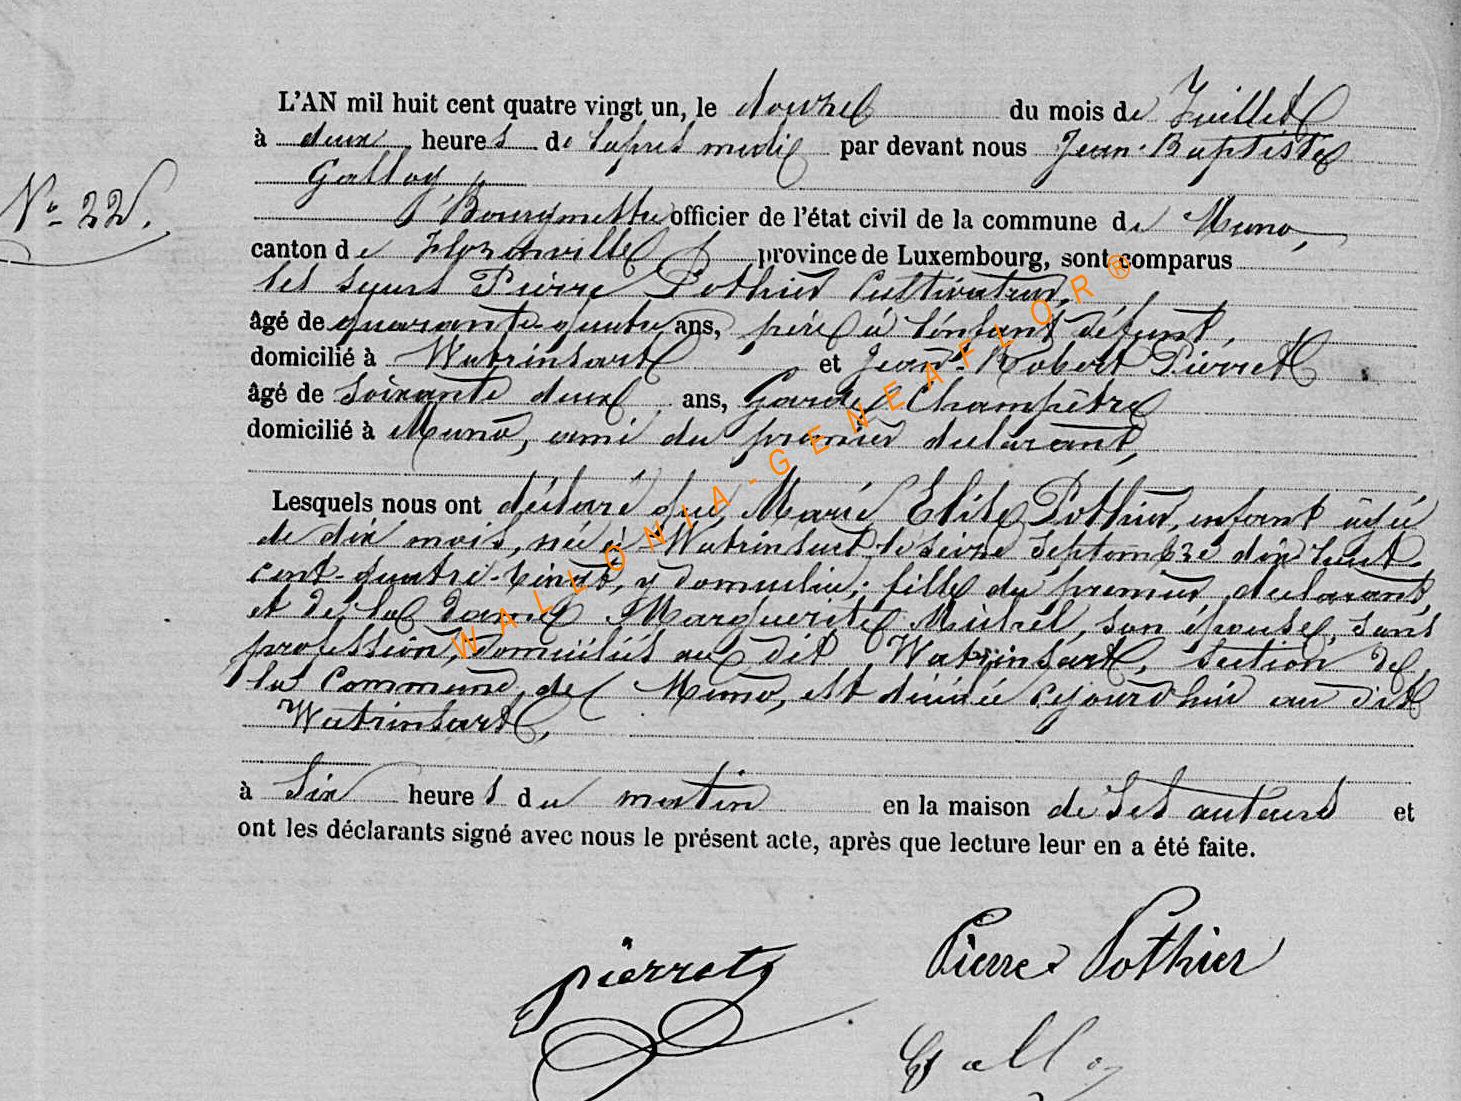 L'AN mil huit cent quatre vingt un, le douze du mois de Juillet
à deux heures de l'après midi par devant nous Jean-Baptiste
Galloy
N° 22.
Bourgmestre officier de l'état civil de la commune de Muno,
canton de Florenville province de Luxembourg, sont comparus
les sieurs Pierre Pothier Cultivateur,
âgé de quarante-quatre ans, père à l'enfant défunt,
domicilié à Watrinsart et Jean-Robert Pierret
âgé de soixante deux ans, Garde Champêtre
domicilié à Muno, ami du premier déclarant,
Lesquels nous ont déclaré que Marie Elise Pothier, enfant âgée
de dix mois, née à Watrinsart le seize septembre dix huit
cent-quatre-vingt, y domiciliée; fille du premier déclarant,
et de la dame Marguerite Michel, son épouse, sans
profession, domiciliés au dit Watrinsart, section de
la commune de Muno, est décédée cejourd'hui au dit
Watrinsart,
à six heures du matin en la maison de ses auteurs et
ont les déclarants signé avec nous le présent acte, après que lecture leur en a été faite.
Pierre Pothier
pierret
Galloy
WALLONIA-GENEAFLOR®